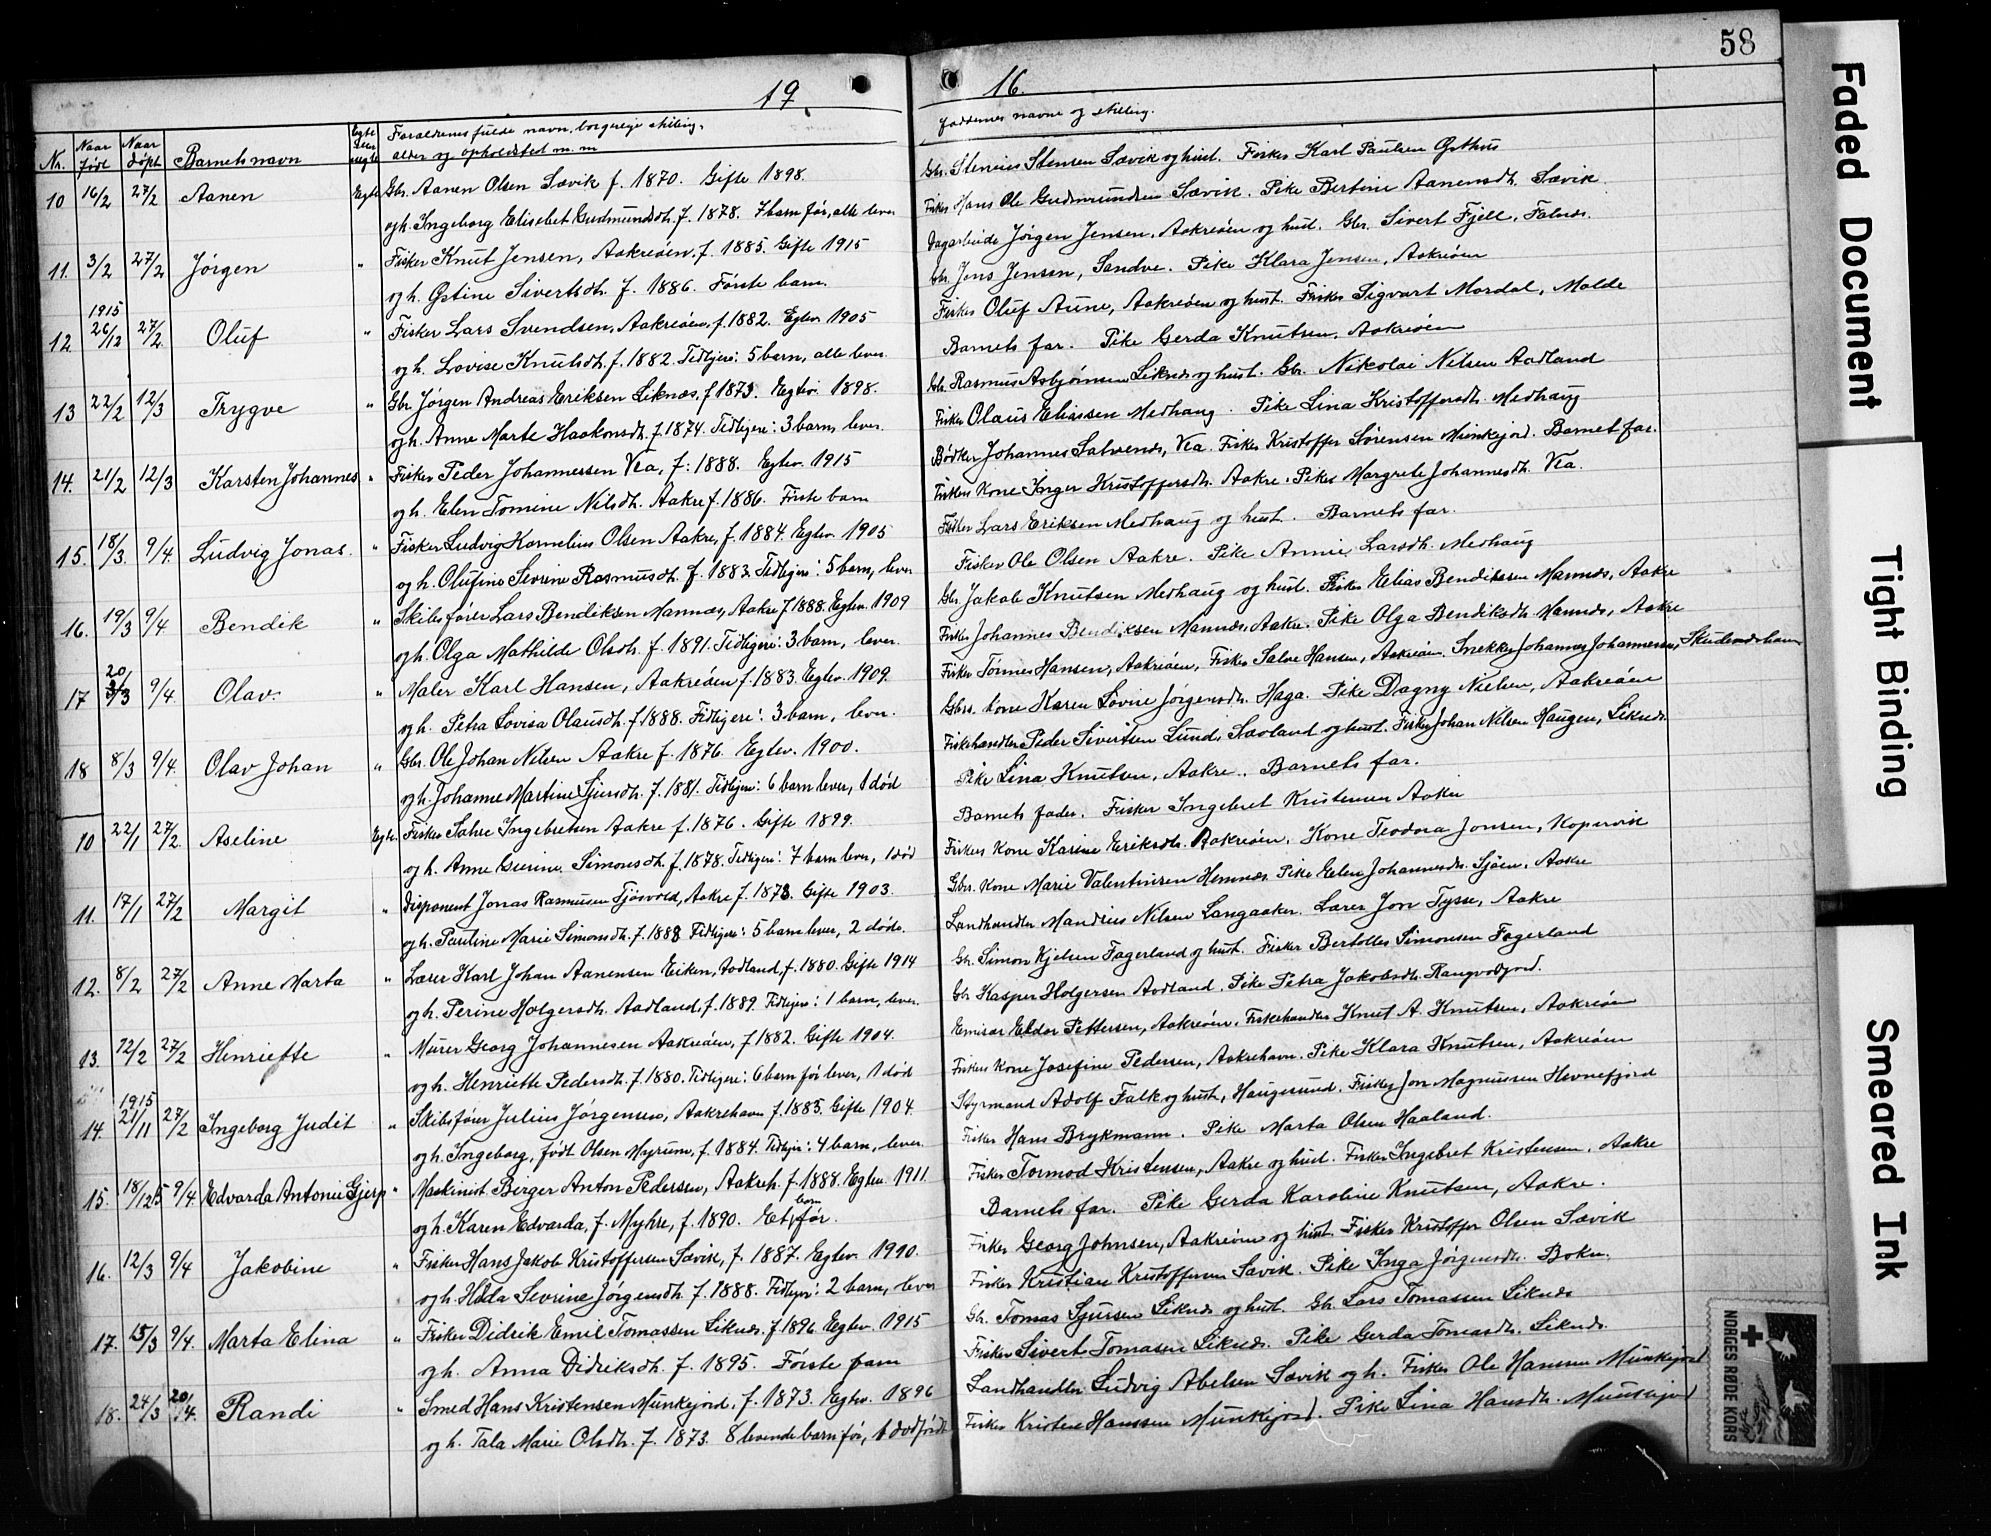 58
19 16.
Nr. Naar født Naar døpt Barnets navn Egte eller uegte Forældrenes fulde navn, borgerlige stilling, alder og opholdsted m. m
Faddernes navne og stilling.
10 16/2 27/2 Aanen Egte Gbr. Aanen Olsen Sævik f. 1870. Gifte 1898.
og h. Ingeborg Elisebet Gudmundsdt. f. 1878. 7 barn før, alle lever
Gbr. Stenius Stensen Sævik og hust. Fisker Karl Paulsen Østhus
Fisker Hans Ole Gudmundsen Sævik. Pike Bertine Aanensdt. Sævik.
11. 3/2 27/2 Jørgen " Fisker Knut Jensen, Aakreøen f. 1885. Gifte 1915
og h. Gstine Sivertsdt. f. 1886. Første barn.
Dagarbeide Jørgen Jensen, Aakreøen og hust. Gbr. Sivert Fjell, Falnes.
Gbr. Jens Jensen, Sandve. Pike Klara Jensen, Aakreøen
12 1915 26/12 27/2 Oluf " Fisker Lars Svendsen, Aakreøen, f. 1882. Egtev. 1905
og h. Lovise Knutsdt. f. 1882. Tidligere: 5 barn, alle lever.
Fisker Oluf Aune, Aakreøen og hust. Fisker Sigvart Mordal, Molde
Barnets far. Pike Gerda Knutsen, Aakreøen
13 22/2 12/3 Trygve " Gbr. Jørgen Andreas Eriksen Liknes, f. 1873. Egtev. 1898.
og h. Anne Marte Haakonsdt. f. 1874. Tidligere: 3 barn lever.
Gbr. Rasmus Asbjørnsen Liknes og hust. Gbr. Nikolai Nilsen Aadland
Fisker Olaus Eliassen Medhaug. Pike Lina Kristoffersdt. Medhaug
14. 21/2 12/3 Karsten Johannes " Fisker Peder Johannessen Vea, f. 1888. Egtev. 1915
og h. Elen Tomine Nilsdt. Aakre f. 1886. Første barn
Bødker Johannes Salvesen, Vea. Fisker Kristoffer Sørensen Munkejord. Barnets far.
Fiskers Kone Inger Kristoffersdt. Aakre. Pike Margrete Johannesdt. Vea.
15. 18/3. 9/4. Ludvig Jonas. " Fisker Ludvig Kornelius Olsen Aakre, f. 1884. Egtev. 1905
og h. Olufine Severine Rasmusdt. f. 1883. Tidligere: 5 barn, lever
Fisker Lars Eriksen Medhaug og hust. Barnets far.
Fisker Ole Olsen Aakre. Pike Annie Larsdt. Medhaug
16. 19/3 9/4 Bendik " Skibsfører Lars Bendiksen Mannes, Aakre f. 1888. Egtev. 1909
og h. Olga Mathilde Olsdt. f. 1891. Tidligere: 3 barn, lever.
Gbr. Jakob Knutsen Medhaug og hust. Fisker Elias Bendiksen Mannes, Aakre
Fisker Johannes Bendiksen Mannes, Aakre. Pike Olga Bendiksdt. Mannes, Aakre
17 20/3 9/4. Olav. " Maler Karl Hansen, Aakreøen f. 1883. Egtev. 1909.
og h. Petra Lovisa Olausdt. f. 1888. Tidligere: 3 barn, lever.
Fisker Tønnes Hansen, Aakreøen, Fisker Salve Hansen, Aakreøen. Snekker Johannes Johannessen, Skudeneshavn
Gbrs. kone Karen Lovine Jørgensdt. Haga. Pike Dagny Nielsen, Aakreøen
18 8/3 9/4. Olav Johan " Gbr. Ole Johan Nilsen Aakre f. 1876. Egtev. 1900.
og h. Johanne Martine Sjursdt. f. 1881. Tidligere: 6 barn lever, 1 død
Fiskehandler Peder Sivertsen Lund, Sæoland og hust. Fisker Johan Nilsen Haugen, Liknes.
Pike Lina Knutsen, Aakre. Barnets far.
10 22/1 27/2. Aseline Egte. Fisker Salve Ingebretsen Aakre f. 1876. Gifte 1899.
og h. Anne Sirine Simonsdt. f. 1878. Tidligere: 7 barn lever, 1 død
Barnets fader. Fisker Ingebret Kristensen Aakre
Fiskers Kone Karine Eriksdt. Aakreøen. Kone Teodora Jonsen, Kopervik
11. 17/1 27/2 Margit " Disponent Jonas Rasmussen Tjøsvold, Aakre f. 1878. Gifte 1903.
og h. Pauline Marie Simonsdt. f. 1888 Tidligere: 5 barn lever, 2 døde.
Gbrs. Kone Marie Valentinsen Hemnes. Pike Elen Johannesdt. Sjøen, Aakre
Landhandler Mandius Nilsen Langaaker. Lærer Jon Tysse, Aakre
12. 8/2 27/2 Anne Marta " Lærer Karl Johan Aanensen Eiken, Aadland, f. 1880. Gifte 1914
og h. Perine Holgersdt. Aadland, f. 1889. Tidligere: 1 barn, lever.
Gbr. Simon Kjelsen Fagerland og hust. Fisker Bertolles Simonsen Fagerland
Gbr Kasper Holgersen Aadland. Pike Petra Jakobsdt. Rangvodfjord.
13. 12/2 27/2 Henriette " Murer Georg Johannesen Aakreøen, f. 1882. Gifte 1904.
og h. Henriette Pedersdt. f. 1880. Tidligere: 6 barn før lever, 1 død
Emisær Eldor Pettersen, Aakreøen. Fiskehandler Knut A. Knutsen, Aakreøen
Fiskers kone Josefine Pedersen, Aakrehavn. Pike Klara Knutsen, Aakreøen
14. 1915 21/11 27/2 Ingeborg Judit " Skibsfører Julius Jørgensen, Aakrehavn f. 1885. Gifte 1904.
og h. Ingeborg, født Olsen Myrum, f. 1884. Tidligere: 4 barn, lever.
Styrmand Adolf Falk og hust, Haugesund. Fisker Jon Magnussen Hevnefjord
Fisker Hans Brykmann. Pike Marta Olsen Haaland.
15. 18/12 5 9/4 Edvarda Antonie Gjerp " Maskinist Birger Anton Pedersen, Aakreh. f. 1888. Egtev. 1911.
og h. Karen Edvarda, f. Myhre, f. 1890. Et barn før.
Fisker Tormod Kristensen, Aakre og hust. Fisker Ingebret Kristensen, Aakre
Barnets far. Pike Gerda Karoline Knutsen, Aakre.
16. 12/3 9/4 Jakobine " Fisker Hans Jakob Kristoffersen Sævik, f. 1887. Egtev. 1910.
og h. Hilda Sevrine Jørgensdt. f. 1888. Tidligere: 2 barn, lever
Fisker Georg Johnsen, Aakreøen og hust. Fisker Kristoffer Olsen Sævik
Fisker Kristian Kristoffersen Sævik. Pike Inga Jørgensdt. Bokn.
17. 15/3 9/4. Marta Elina " Fisker Didrik Emil Tomassen Liknes, f. 1896 Egtev. 1915
og h. Anna Didriksdt. f. 1895. Første barn
Gbr. Tomas Sjursen Liknes og hust. Gbr. Lars Tomassen Liknes
Fisker Sivert Tomasen Liknes. Pike Gerda Tomasdt. Liknes.
18. 24/3 20/4. Randi " Smed Hans Kristensen Munkejord, f. 1873. Egtev. 1896
og h. Tala Marie Olsdt. f. 1873. 8 levende barn før, 1 dødfødt
Landhandler Ludvig Abelsen Sævik og h. Fisker Ole Hanssen Munkejord
Fisker Kristen Hanssen Munkejord. Pike Lina Hansdt. Munkejord
Faded Document
Tight Binding
Smeared Ink
NORGES RØDE KORS